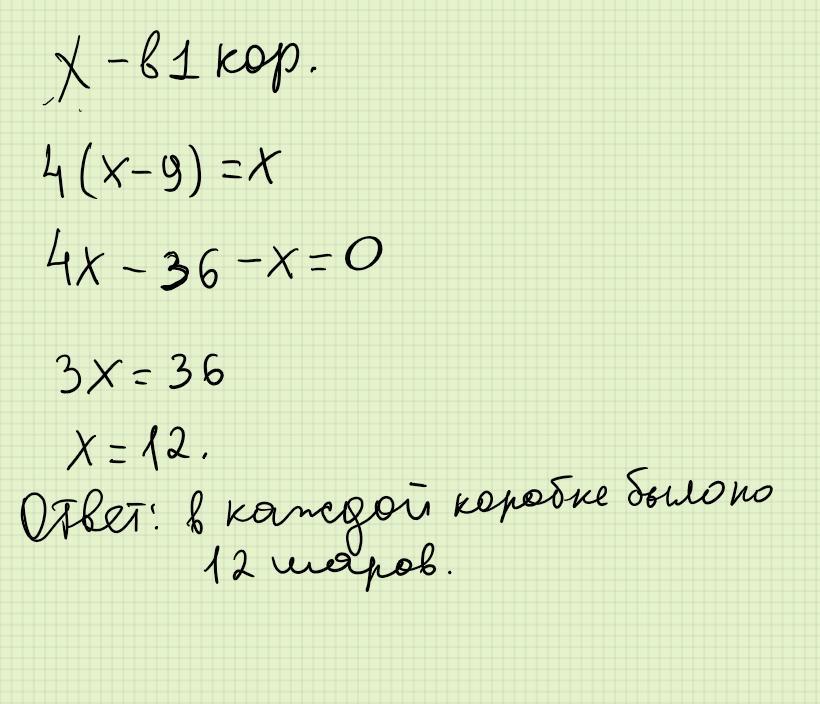 x - в 1 кор.
4(x-9) = x
4x - 36 - x = 0
3x = 36
x = 12.
Ответ: в каждой коробке было по
12 шаров.